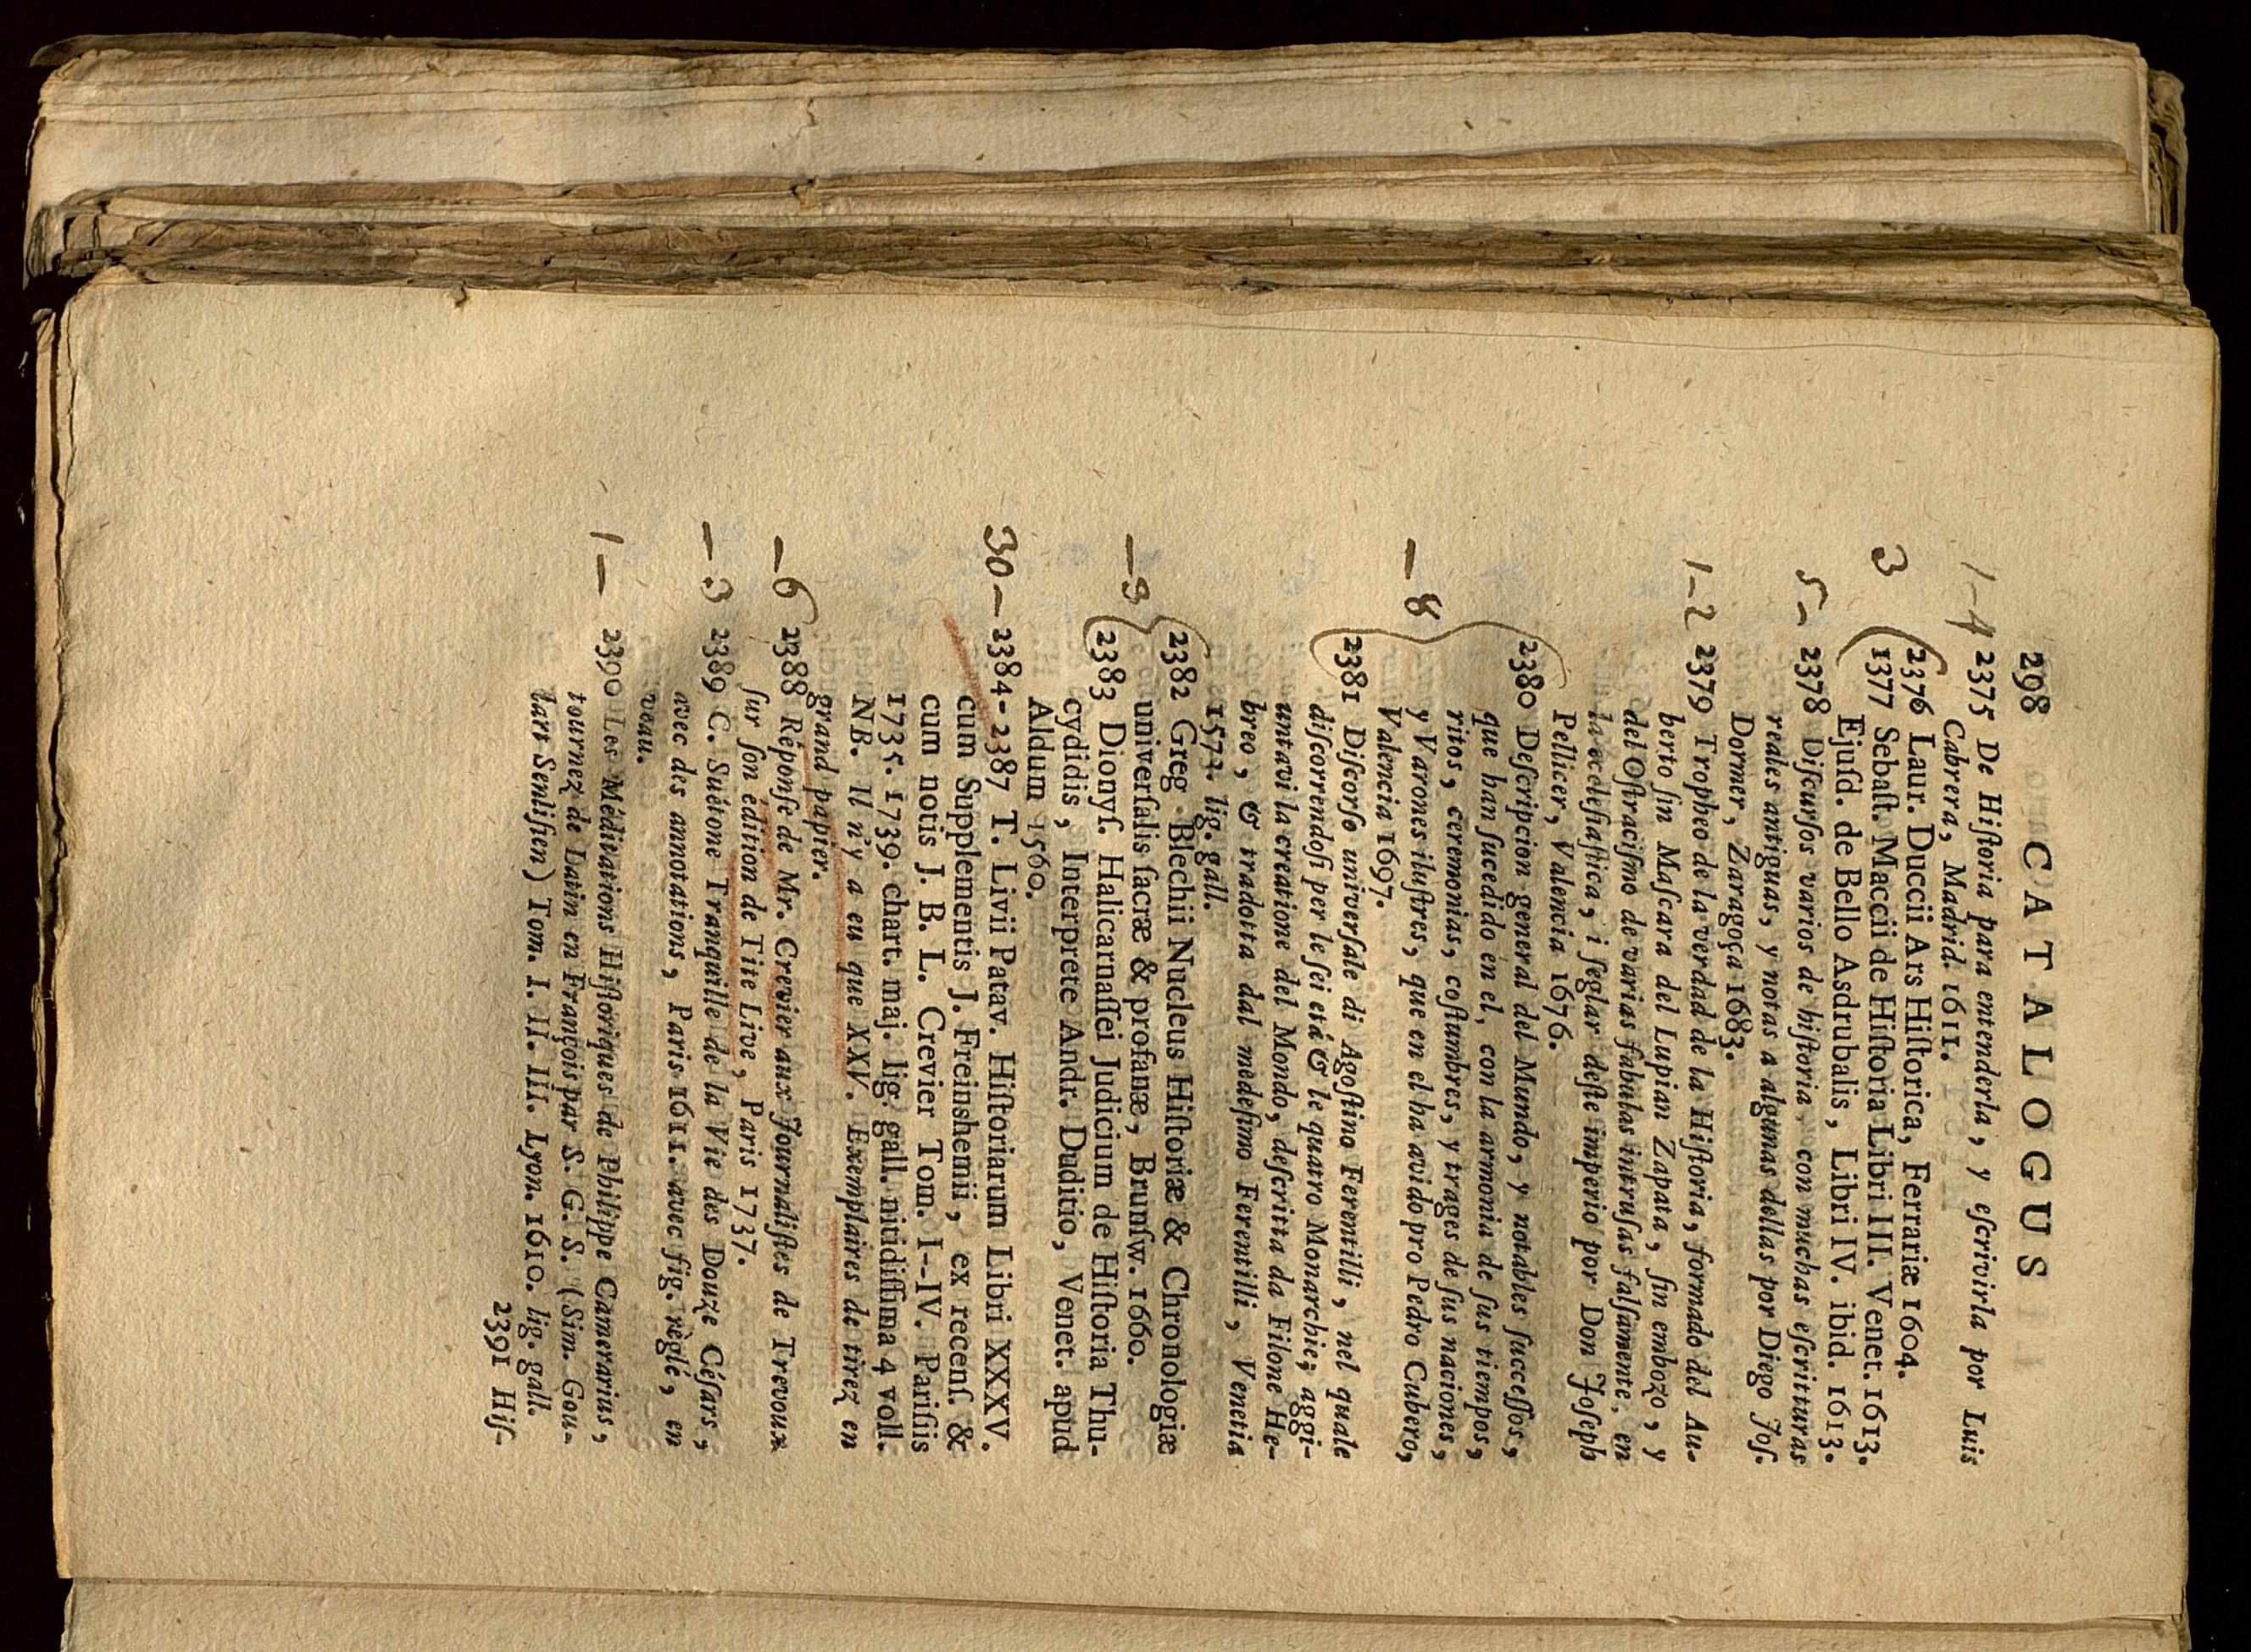 298 CATALOGUS
1-4 2375 De Hiſtoria para entenderla, y eſcrivirla por Luis
Cabrera, Madrid. 1611.
3 2376 Laur. Duccii Ars Hiſtorica, Ferrariæ 1604.
1377 Sebaſt. Maccii de Hiſtoria Libri III. Venet. 1613.
Ejuſd. de Bello Asdrubalis, Libri IV. ibid. 1613.
5- 2378 Diſcurſos varios de hiſtoria, con muchas eſcritturas
reales antiguas, y notas a algunas dellas por Diego Joſ.
Dormer, Zaragoça 1683.
1-2 2379 Tropheo de la verdad de la Hiſtoria, formado del Au-
berto ſin Maſcara del Lupian Zapata, ſin embozo, y
del Oſtraciſmo de varias fabulas intruſas falſamente, en
la eccleſiaſtica, i ſeglar deſte imperio por Don Joſeph
Pellicer, Valencia 1676.
2380 Deſcripcion general del Mundo, y notables ſucceſſos,
que han ſucedido en el, con la armonia de ſus tiempos,
ritos, ceremonias, coſtumbres, y trages de ſus naciones,
y Varones iluſtres, que en el ha avido pro Pedro Cubero,
Valencia 1697.
-8
2381 Diſcorſo univerſale di Agoſtino Ferentilli, nel quale
diſcorrendoſi per le ſei etá & le quatro Monarchie; aggi-
untavi la creatione del Mondo, deſcritta da Filone He-
breo, & tradotta dal medeſimo Ferentilli, Venetia
1573. lig. gall.
2382 Greg. Blechii Nucleus Hiſtoriæ & Chronologiæ
univerſalis ſacræ & profanæ, Brunſw. 1660.
-9
2383 Dionyſ. Halicarnaſſei Judicium de Hiſtoria Thu-
cydidis, Interprete Andr. Duditio, Venet. apud
Aldum 1560.
30- 2384-2387 T. Livii Patav. Hiſtoriarum Libri XXXV.
cum Supplementis J. Freinshemii, ex recenſ. &
cum notis J. B. L. Crevier Tom. I--IV. Pariſiis
1735. 1739. chart. maj. lig. gall. nitidiſſima 4 voll.
NB. Il n'y a eu que XXV. Exemplaires de tirez en
grand papier.
-6 2388 Réponſe de Mr. Crevier aux Journaliſtes de Trevoux
ſur ſon édition de Tite Live, Paris 1737.
-3 2389 C. Suétone Tranquille de la Vie des Douze Céſars,
avec des annotations, Paris 1611. avec fig. règlé, en
veau.
1- 2390 Les Méditations Hiſtoriques de Philippe Camerarius,
tournez de Latin en François par S. G. S. (Sim. Gou-
lart Senliſien) Tom. I. II. III. Lyon. 1610. lig. gall.
2391 Hiſ-